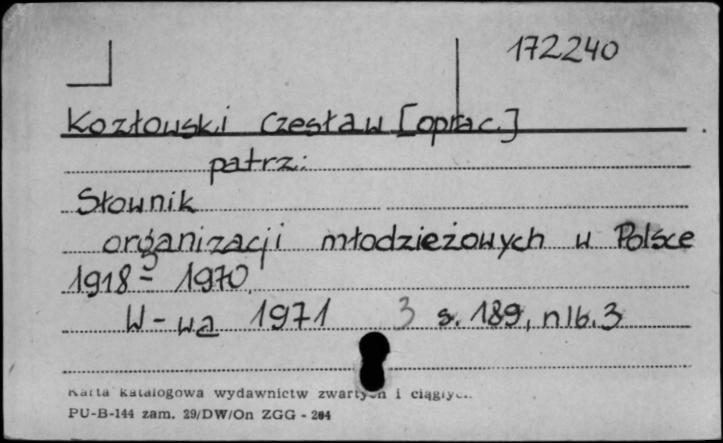 172240
Kozłowski Czesław [oprac.]
patrz:
Słownik
organizacji młodzieżowych w Polsce
1918 - 1970
W-wa 1971 3 s. 189, nlb. 3
Karta katalogowa wydawnictw zwartych i ciągłych
PU-B-144 zam. 29/DW/On ZGG - 204